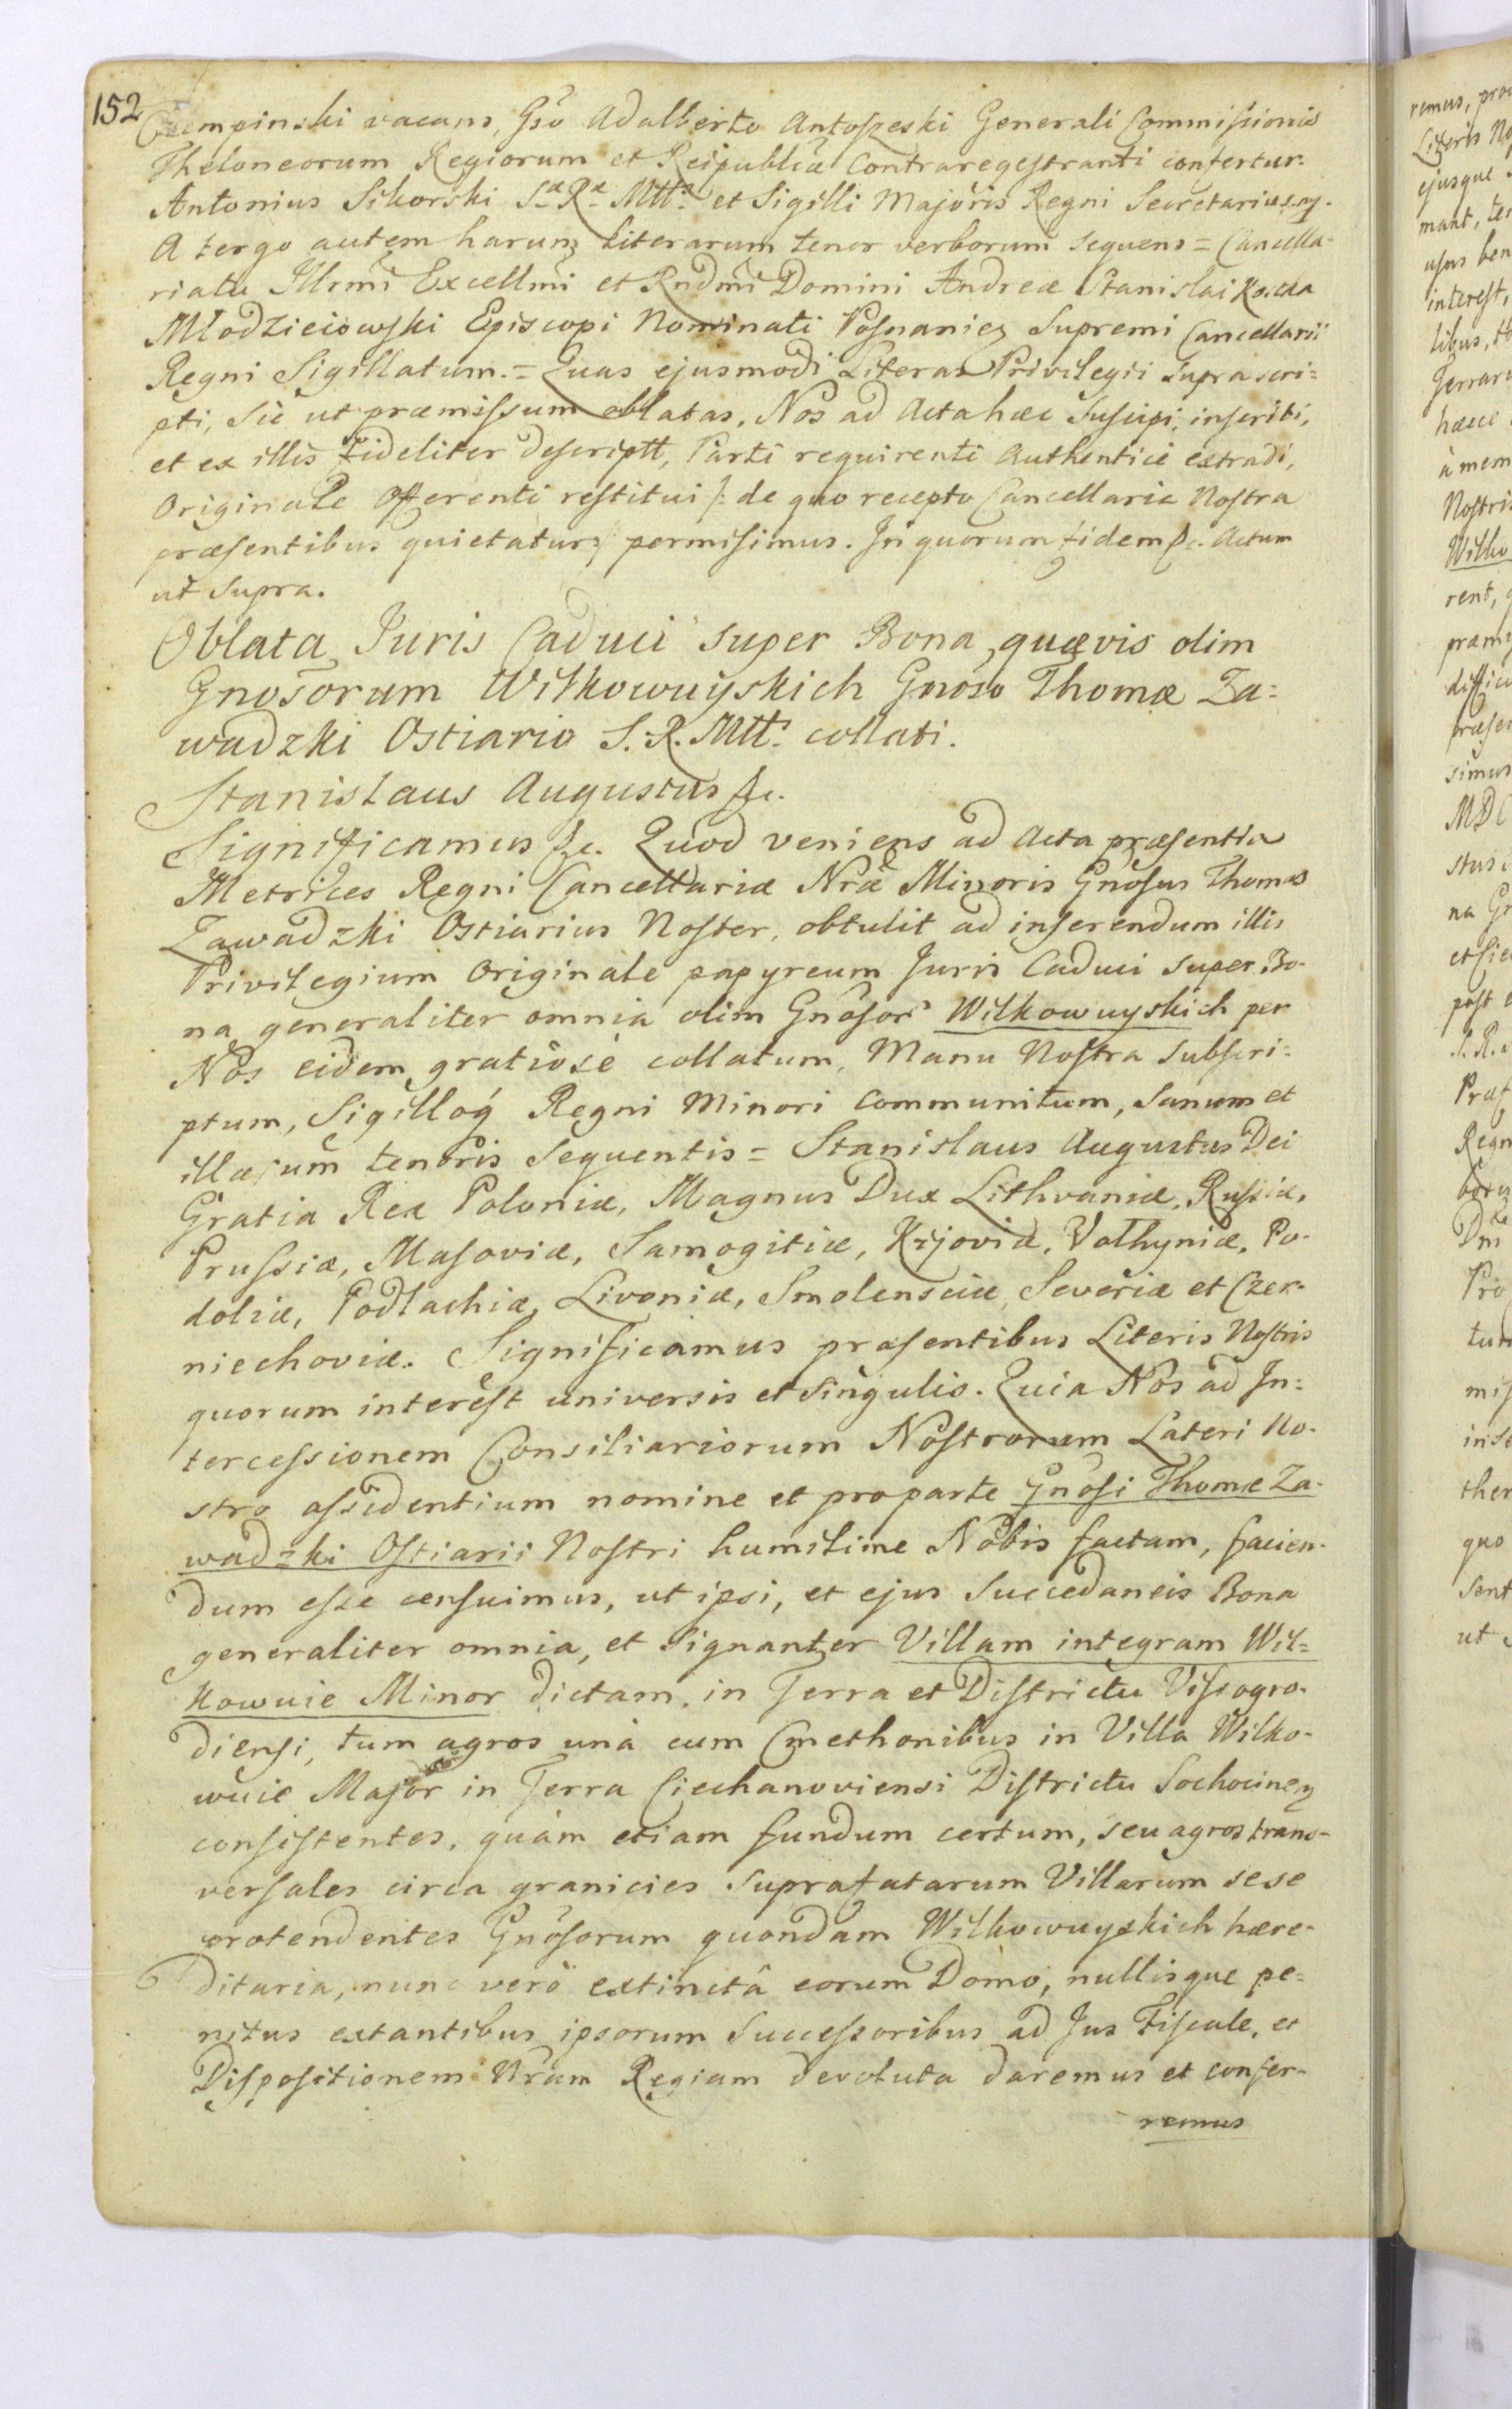 152
Czempinski vacans, Gso Adalberto Antoszeski Generali Commissionis
Theloneorum Regiorum et Reipublicæ Contraregestranti confertur.
Antonius Sikorski Sæ Ræ Mttis et Sigilli Majoris Regni Secretarius mp.
A tergo autem harum Literarum tenor verborum sequens = Cancella-
riatu Illrmi Excellmi et Rndmi Domini Andreæ Stanislai Kostka
Młodzieiowski Episcopi Nominati Posnanien Supremi Cancellarii
Regni Sigillatum. = Quas ejusmodi Literas Privilegii suprascri=
pti, sic ut præmissum oblatas, Nos ad Acta hæc suscipi, inscribi,
et ex illis fideliter descriptt, Parti requirenti Authentice extradi,
Originale Offerenti restitui /: de quo recepto Cancellaria Nostra
præsentibus quietatur :/ permisimus. In quorum fidem &c. Actum
ut supra.
Oblata Juris Caduci super Bona quævis olim
Gnosorum Wilkowuyskich Gnoso Thomæ Za=
wadzki Ostiario S. R. Mttis collati.
Stanislaus Augustus &c.
Significamus &c. Quod veniens ad Acta præsentia
Metrices Regni Cancellariæ Nræ Minoris Gnosus Thomas
Zawadzki Ostiarius Noster, obtulit ad inserendum illis
Privilegium Originale papyreum Juris Caduci super Bo-
na generaliter omnia olim Gnosor Wilkowuyskich per
Nos eidem gratiosè collatum, Manu Nostra subscri=
ptum, Sigilloq Regni Minori communitum, sanum et
illæsum tenoris sequentis = Stanislaus Augustus Dei
Gratia Rex Poloniæ, Magnus Dux Lithvaniæ, Russiæ,
Prussiæ, Masoviæ, Samogitiæ, Kijoviæ, Volhyniæ, Po-
doliæ, Podlachiæ, Livoniæ, Smolensciæ, Severiæ et Czer-
niechoviæ. Significamus præsentibus Literis Nostris
quorum interest universis et singulis. Quia Nos ad In=
tercessionem Consiliariorum Nostrorum Lateri No-
stro assidentium nomine et pro parte Gnosi Thomæ Za-
wadzki Ostiarii Nostri humilime Nobis factam, facien-
dum esse censuimus, ut ipsi, et ejus Succedaneis Bona
generaliter omnia, et signanter Villam integram Wil=
kowuie Minor dictam, in Terra et Districtu Vissogro-
diensi, tum agros unà cum Cmethonibus in Villa Wilko-
wuie Major in Terra Ciechanoviensi Districtu Sochocinen
consistentes, quàm etiam fundum certum, seu agros trans-
versales circa granicies suprafatarum Villarum sese
protendentes Gnosorum quondam Wilkowuyskich hære-
ditaria, nunc verò extinctâ eorum Domo, nullisque pe=
nitus extantibus ipsorum Successoribus ad Jus Fiscale, et
Dispositionem Nram Regiam devoluta daremus et confer-
remus